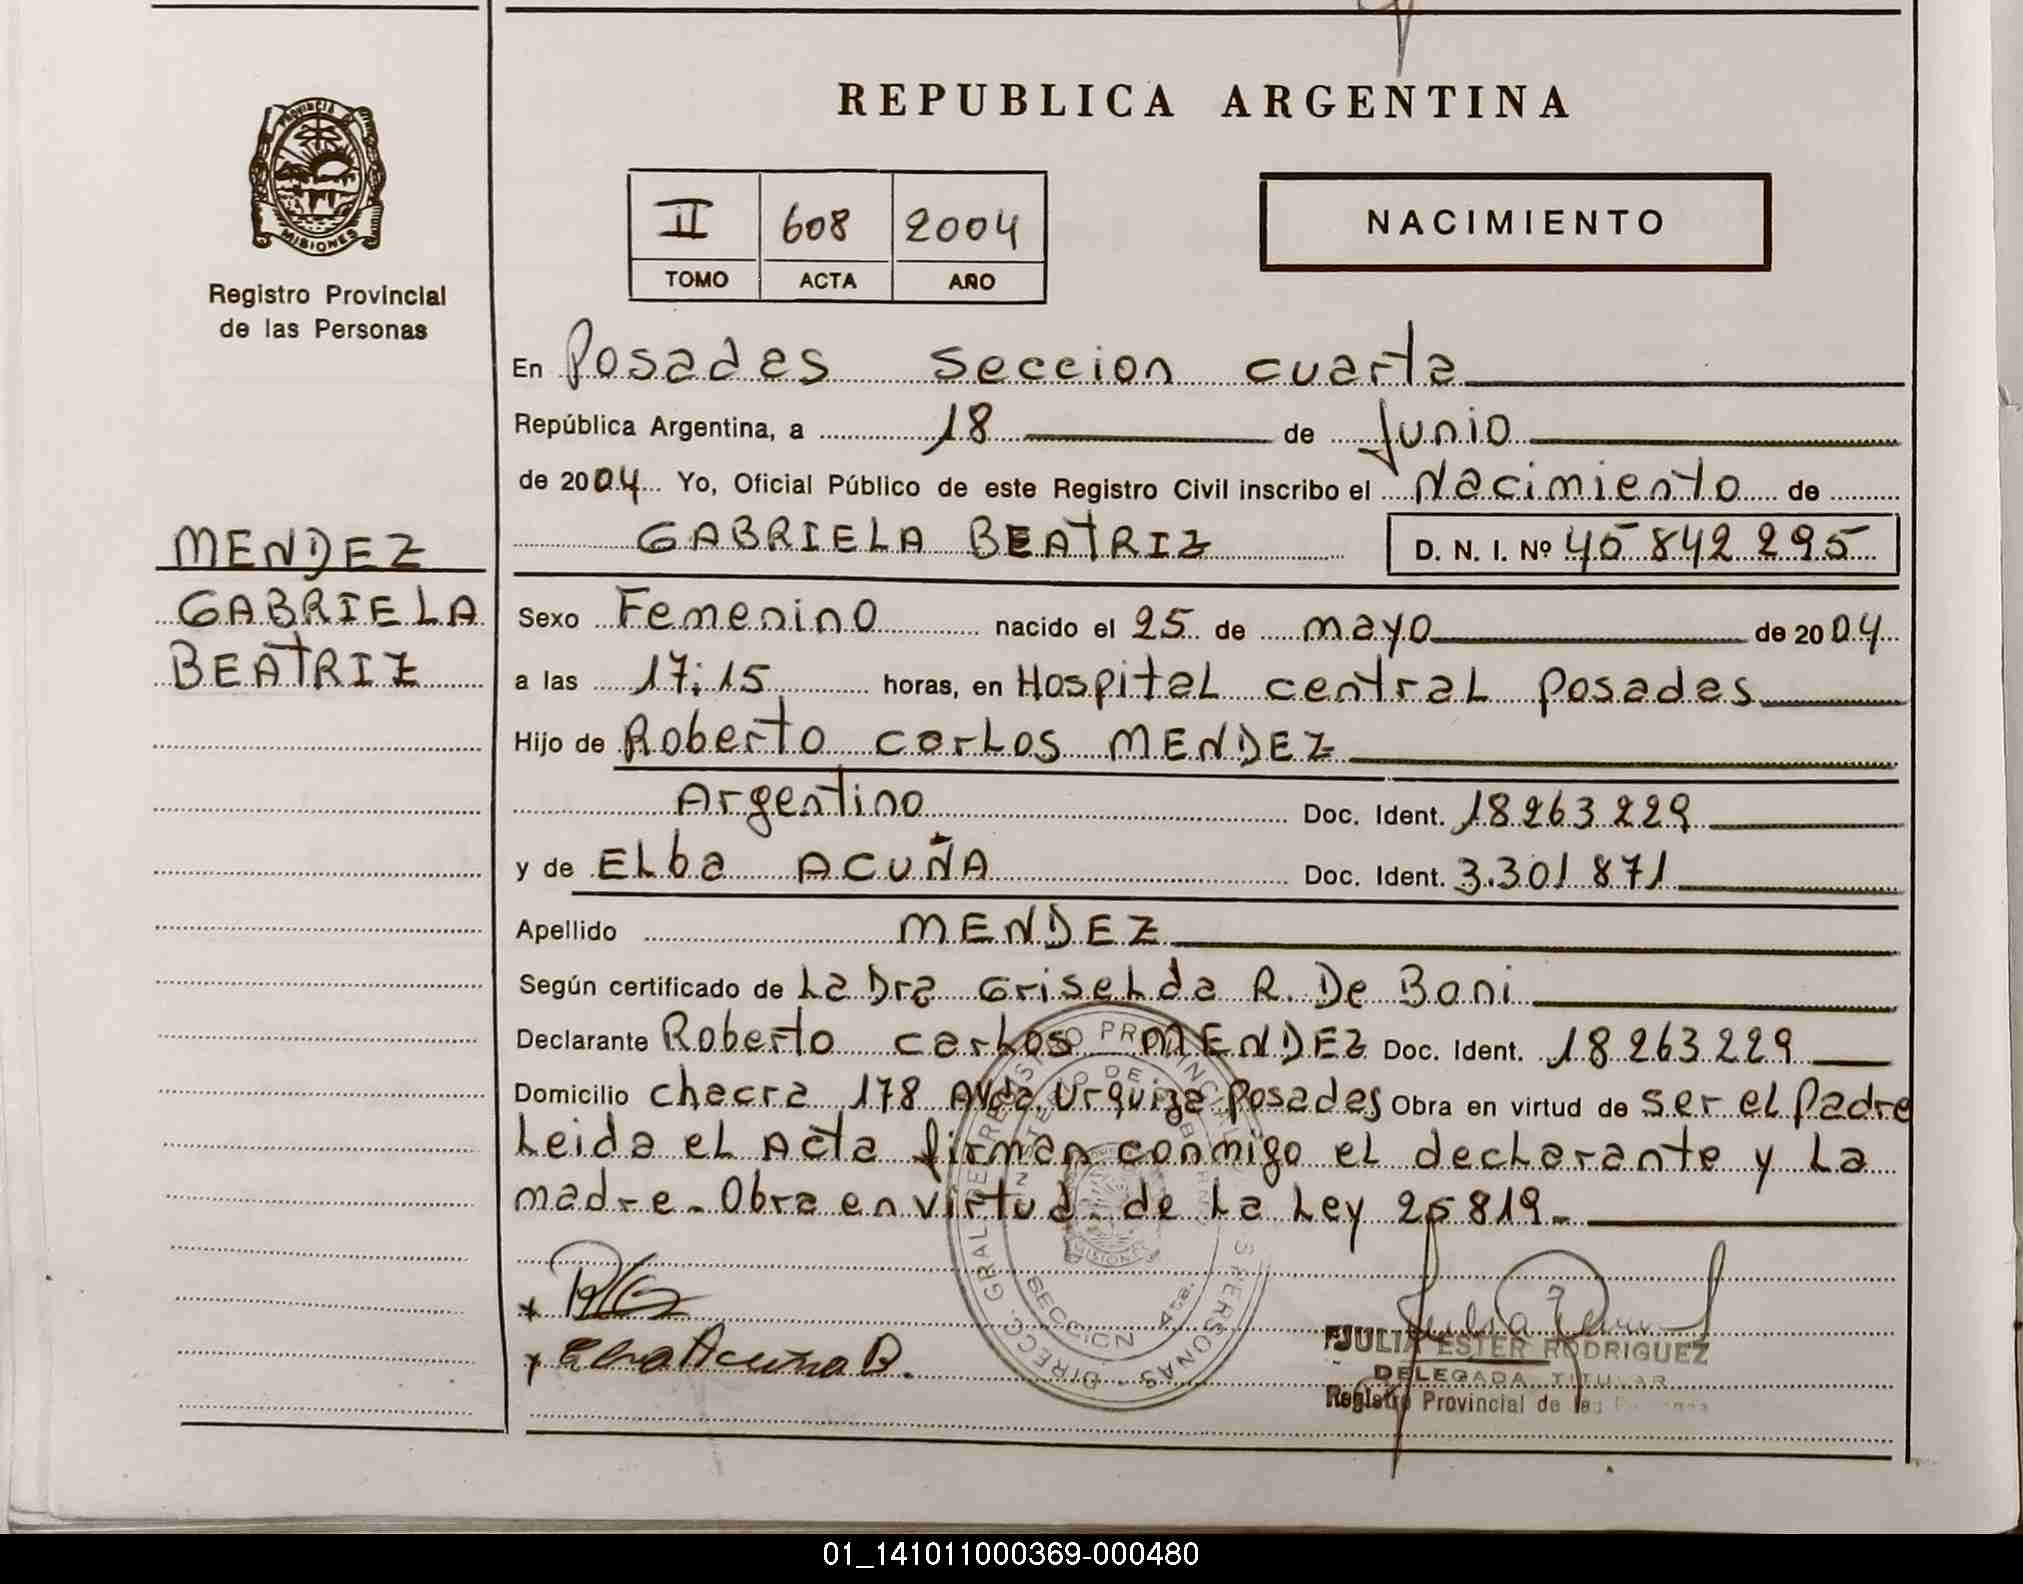 REPUBLICA ARGENTINA
PROVINCIA DE
MISIONES
Registro Provincial
de las Personas
II 608 2004
TOMO ACTA AÑO
NACIMIENTO
En Posadas seccion cuarta
República Argentina, a 18 de Junio
de 2004 Yo, Oficial Público de este Registro Civil inscribo el Nacimiento de
GABRIELA BEATRIZ D. N. I. Nº 45 842 295
MENDEZ
GABRIELA
BEATRIZ
Sexo Femenino nacido el 25 de mayo de 2004
a las 17:15 horas, en Hospital central posadas
Hijo de Roberto carlos MENDEZ
Argentino Doc. Ident. 18 263 229
y de Elba ACUÑA Doc. Ident. 3.301 871
Apellido MENDEZ
Según certificado de La Dra Griselda R. De Bani
Declarante Roberto carlos MENDEZ Doc. Ident. 18 263 229
Domicilio chacra 178 AVda. Urquiza posadas Obra en virtud de ser el Padre
Leida el Acta firman conmigo el declarante y La
madre. Obra en virtud de La Ley 25 819.
DIRECC. GRAL. DE REGISTRO PROVINCIAL PERSONAS
MINISTERIO DE GOBIERNO
MISIONES
SECCION 4ta.
x
x Elba Acuña B.
JULIA ESTER RODRIGUEZ
DELEGADA TITULAR
Registro Provincial de las Personas
01_141011000369-000480